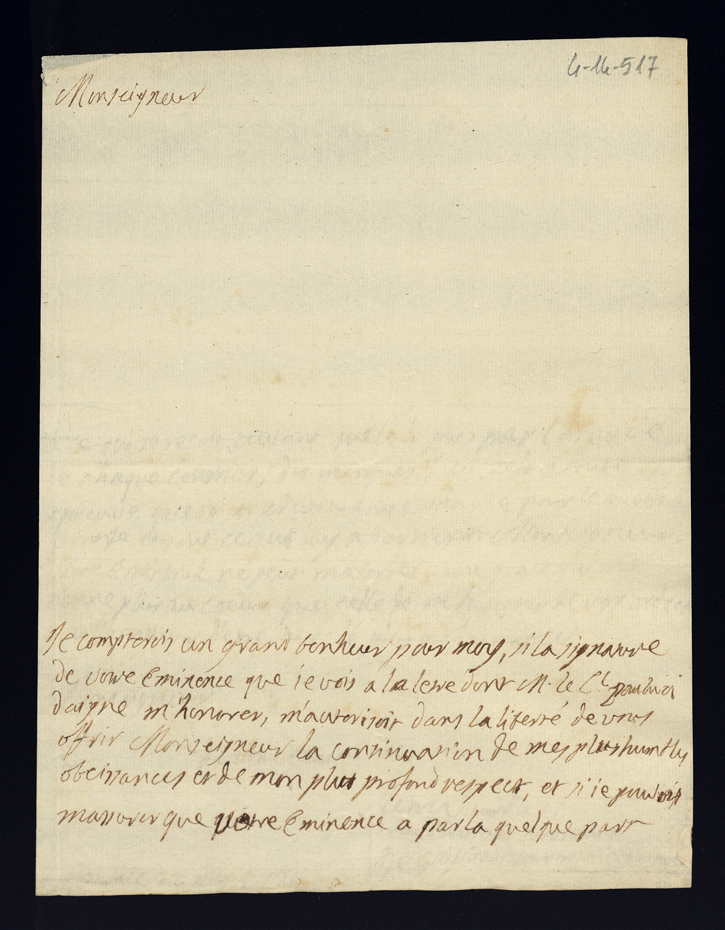 4-14-517
Monseigneur
Je compterois un grand bonheur pour moy, si la signature
de votre Eminence que je vois a la letre dont M. le C.l
daigne m'honorer, m'autorisoit dans la liberté de vous
offrir Monseigneur la continuation de mes plus humbles
obeissances et de mon plus profond respect, et si je pouvois
m'assorer que votre Eminence a par la quelque part